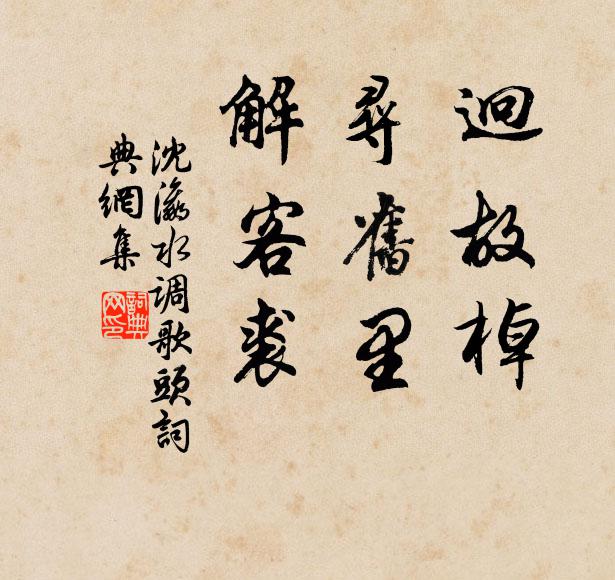 迴故棹
尋舊里
解客裘
沈瀛水调歌頭詞
典網集
詞典网印